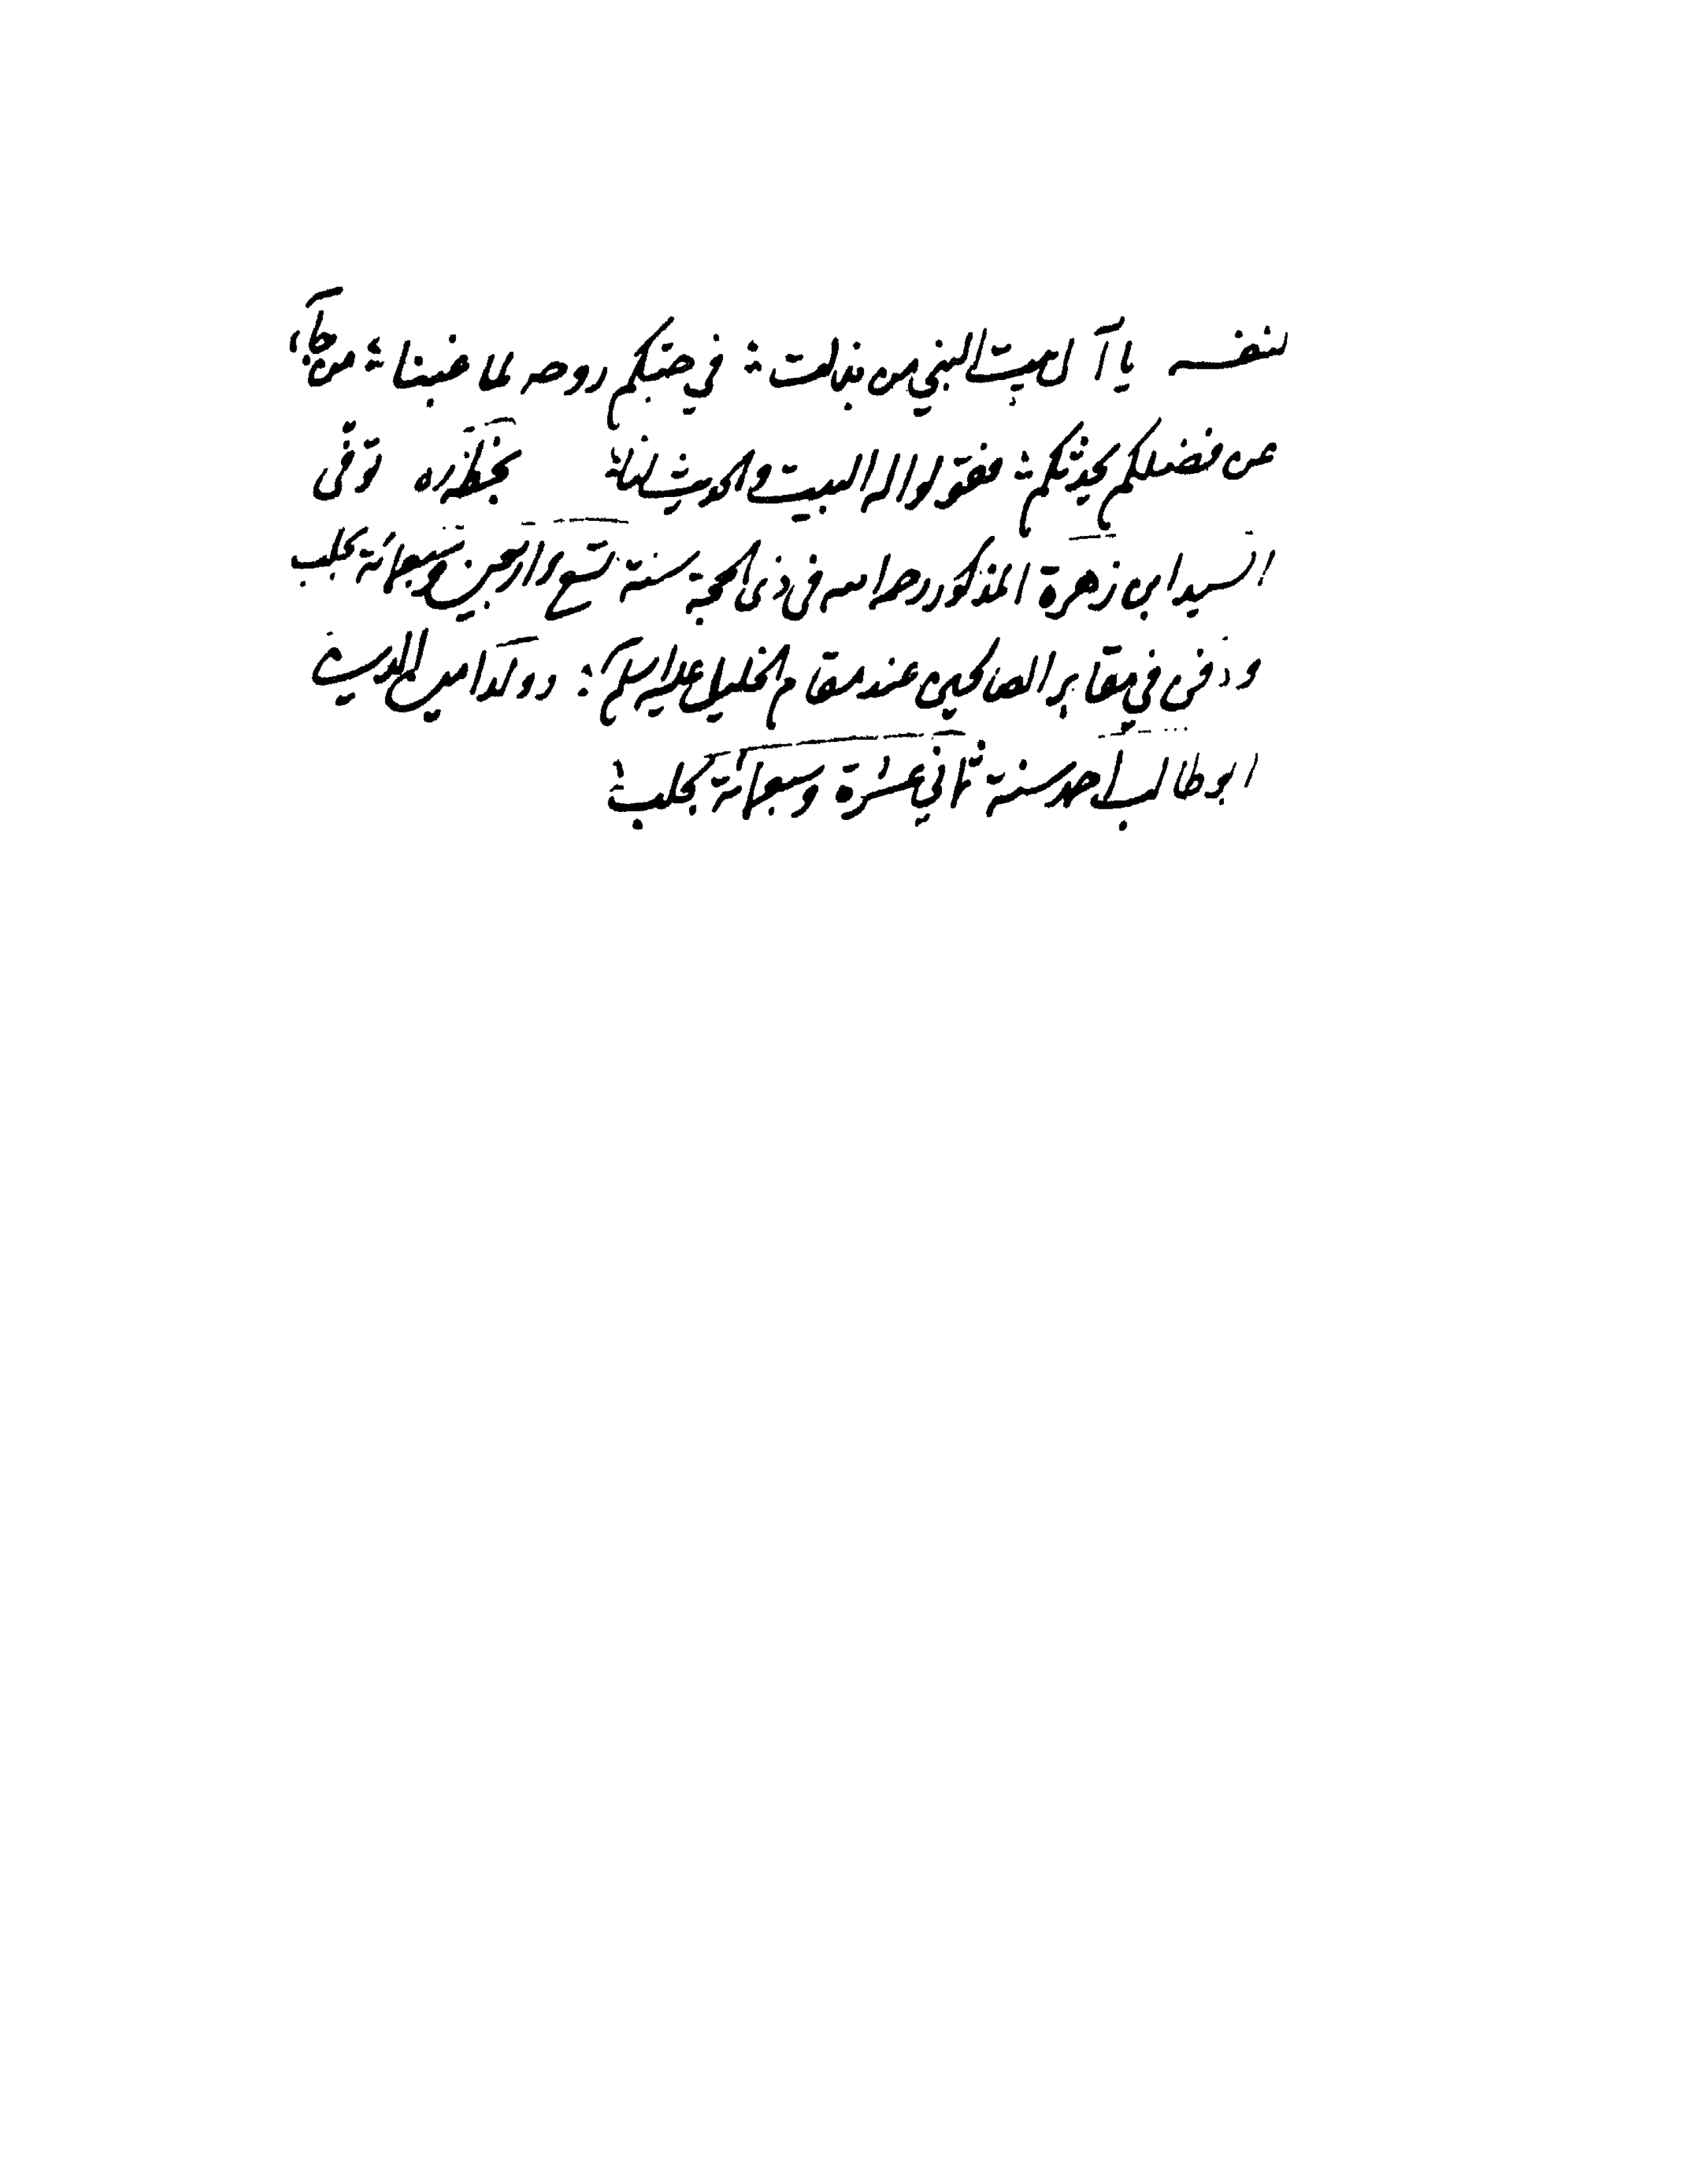 لنفسه يا آل بيت النبي من بذلت ؛ في حبكم روحه لما غبنا ؛ من جاء
عن فضلكم يحدثكم ؛ فقولوا له البيت والحديث لنا ؛ بخطه ره توفى
السيد ابن زهرة المذكور رحمه الله فى ذى الحجة سنة تسع واربعين وسبعمائة بحلب
ودفن في مقابر الصالحين عند مقام الخليل عليه السلم ؛ وولد امين الدين
ابو طالب احمد سنة ثماني عشرة وسبعمائة بحلب